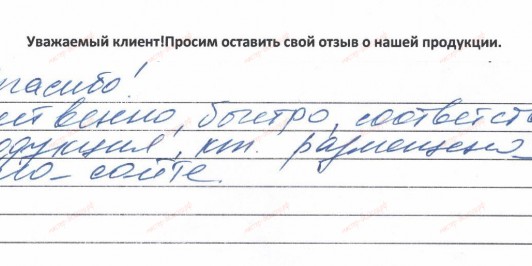 Уважаемый клиент!Просим оставить свой отзыв о нашей продукции.
пасибо!
ственно, быстро, соответств
одукция, кт. размещена
на сайте.